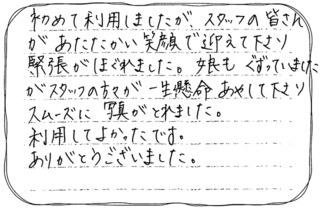 初めて利用しましたが、スタッフの皆さん
があたたかい笑顔で迎えて下さり
緊張がほぐれました。娘もぐずっていました
がスタッフの方々が一生懸命あやして下さり
スムーズに写真がとれました。
利用してよかったです。
ありがとうございました。